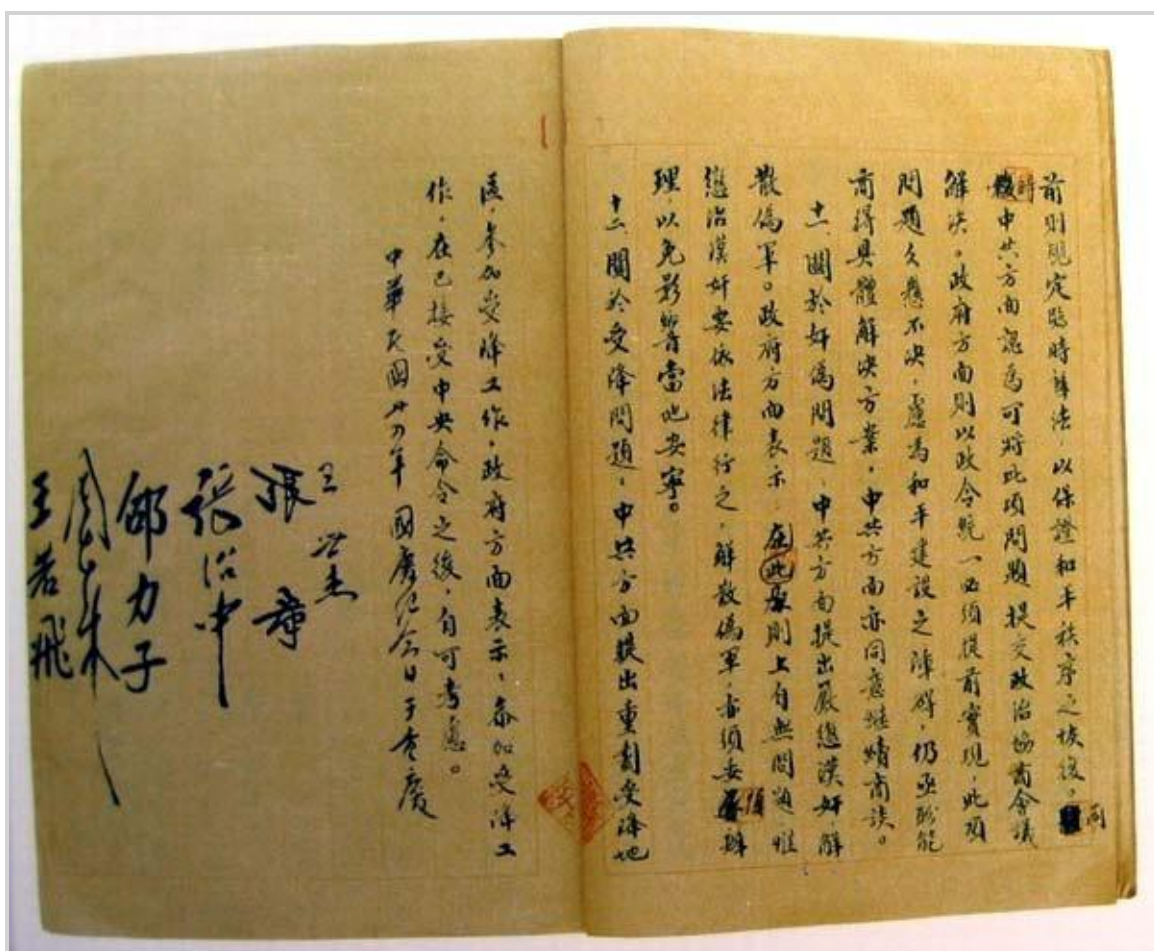 前則規定臨時辦法,以保證和平秩序之恢復,同
時中共方面認為可將此項問題提交政治協商會議
解決。政府方面則以政令統一必須提前實現,此項
問題久懸不決,慮為和平建設之障碍,仍亟盼能
商得具體解決方案。中共方面亦同意繼續商談。
十一、關於奸偽問題,中共方面提出嚴懲漢奸解
散偽軍。政府方面表示,在此原則上自無問題,惟
懲治漢奸要依法律行之,解散偽軍亦須妥慎辦
理,以免影響當地安寧。
十二、關於受降問題,中共方面提出重劃受降地
區,參加受降工作,政府方面表示,參加受降工
作,在已接受中央命令之後,自可考慮。
中華民國卅四年國慶紀念日于重慶
王世杰
張羣
張治中
邵力子
周恩來
王若飛